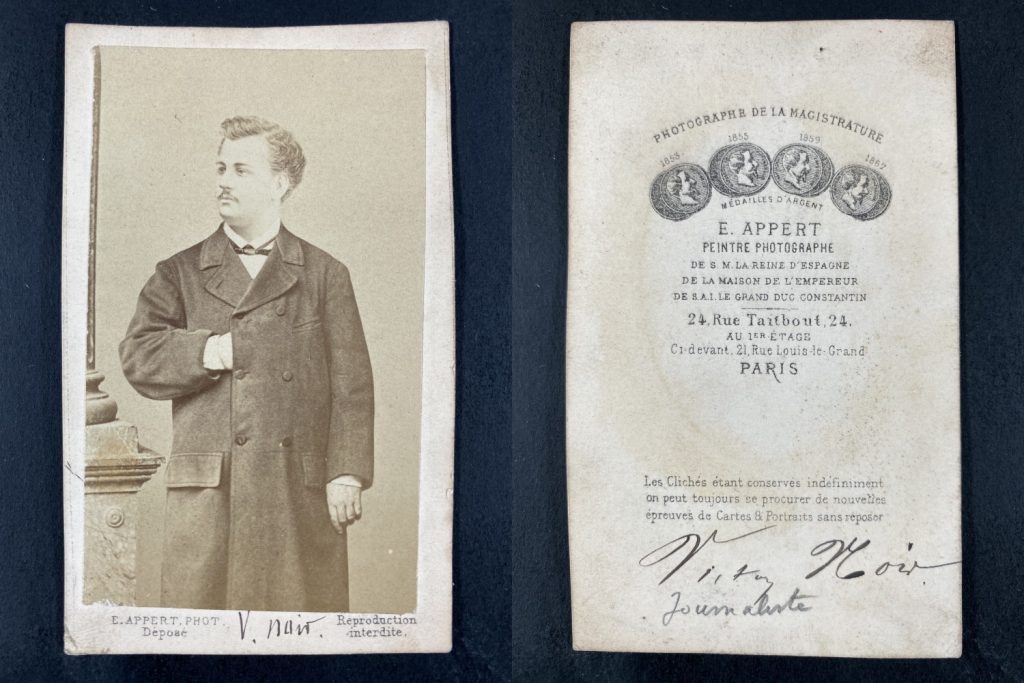 E. APPERT, PHOT.
Déposé
V. noir.
Reproduction
interdite.
PHOTOGRAPHE DE LA MAGISTRATURE
1855
1855
1859
1867
MÉDAILLES D'ARGENT
E. APPERT
PEINTRE PHOTOGRAPHE
DE S. M. LA REINE D'ESPAGNE
DE LA MAISON DE L'EMPEREUR
DE S.A.I. LE GRAND DUC CONSTANTIN
24, Rue Taitbout, 24.
AU 1ER ÉTAGE
Ci-devant, 21, Rue Louis-le-Grand
PARIS
Les Clichés étant conservés indéfiniment
on peut toujours se procurer de nouvelles
épreuves de Cartes & Portraits sans reposer
Victor Noir
Journaliste